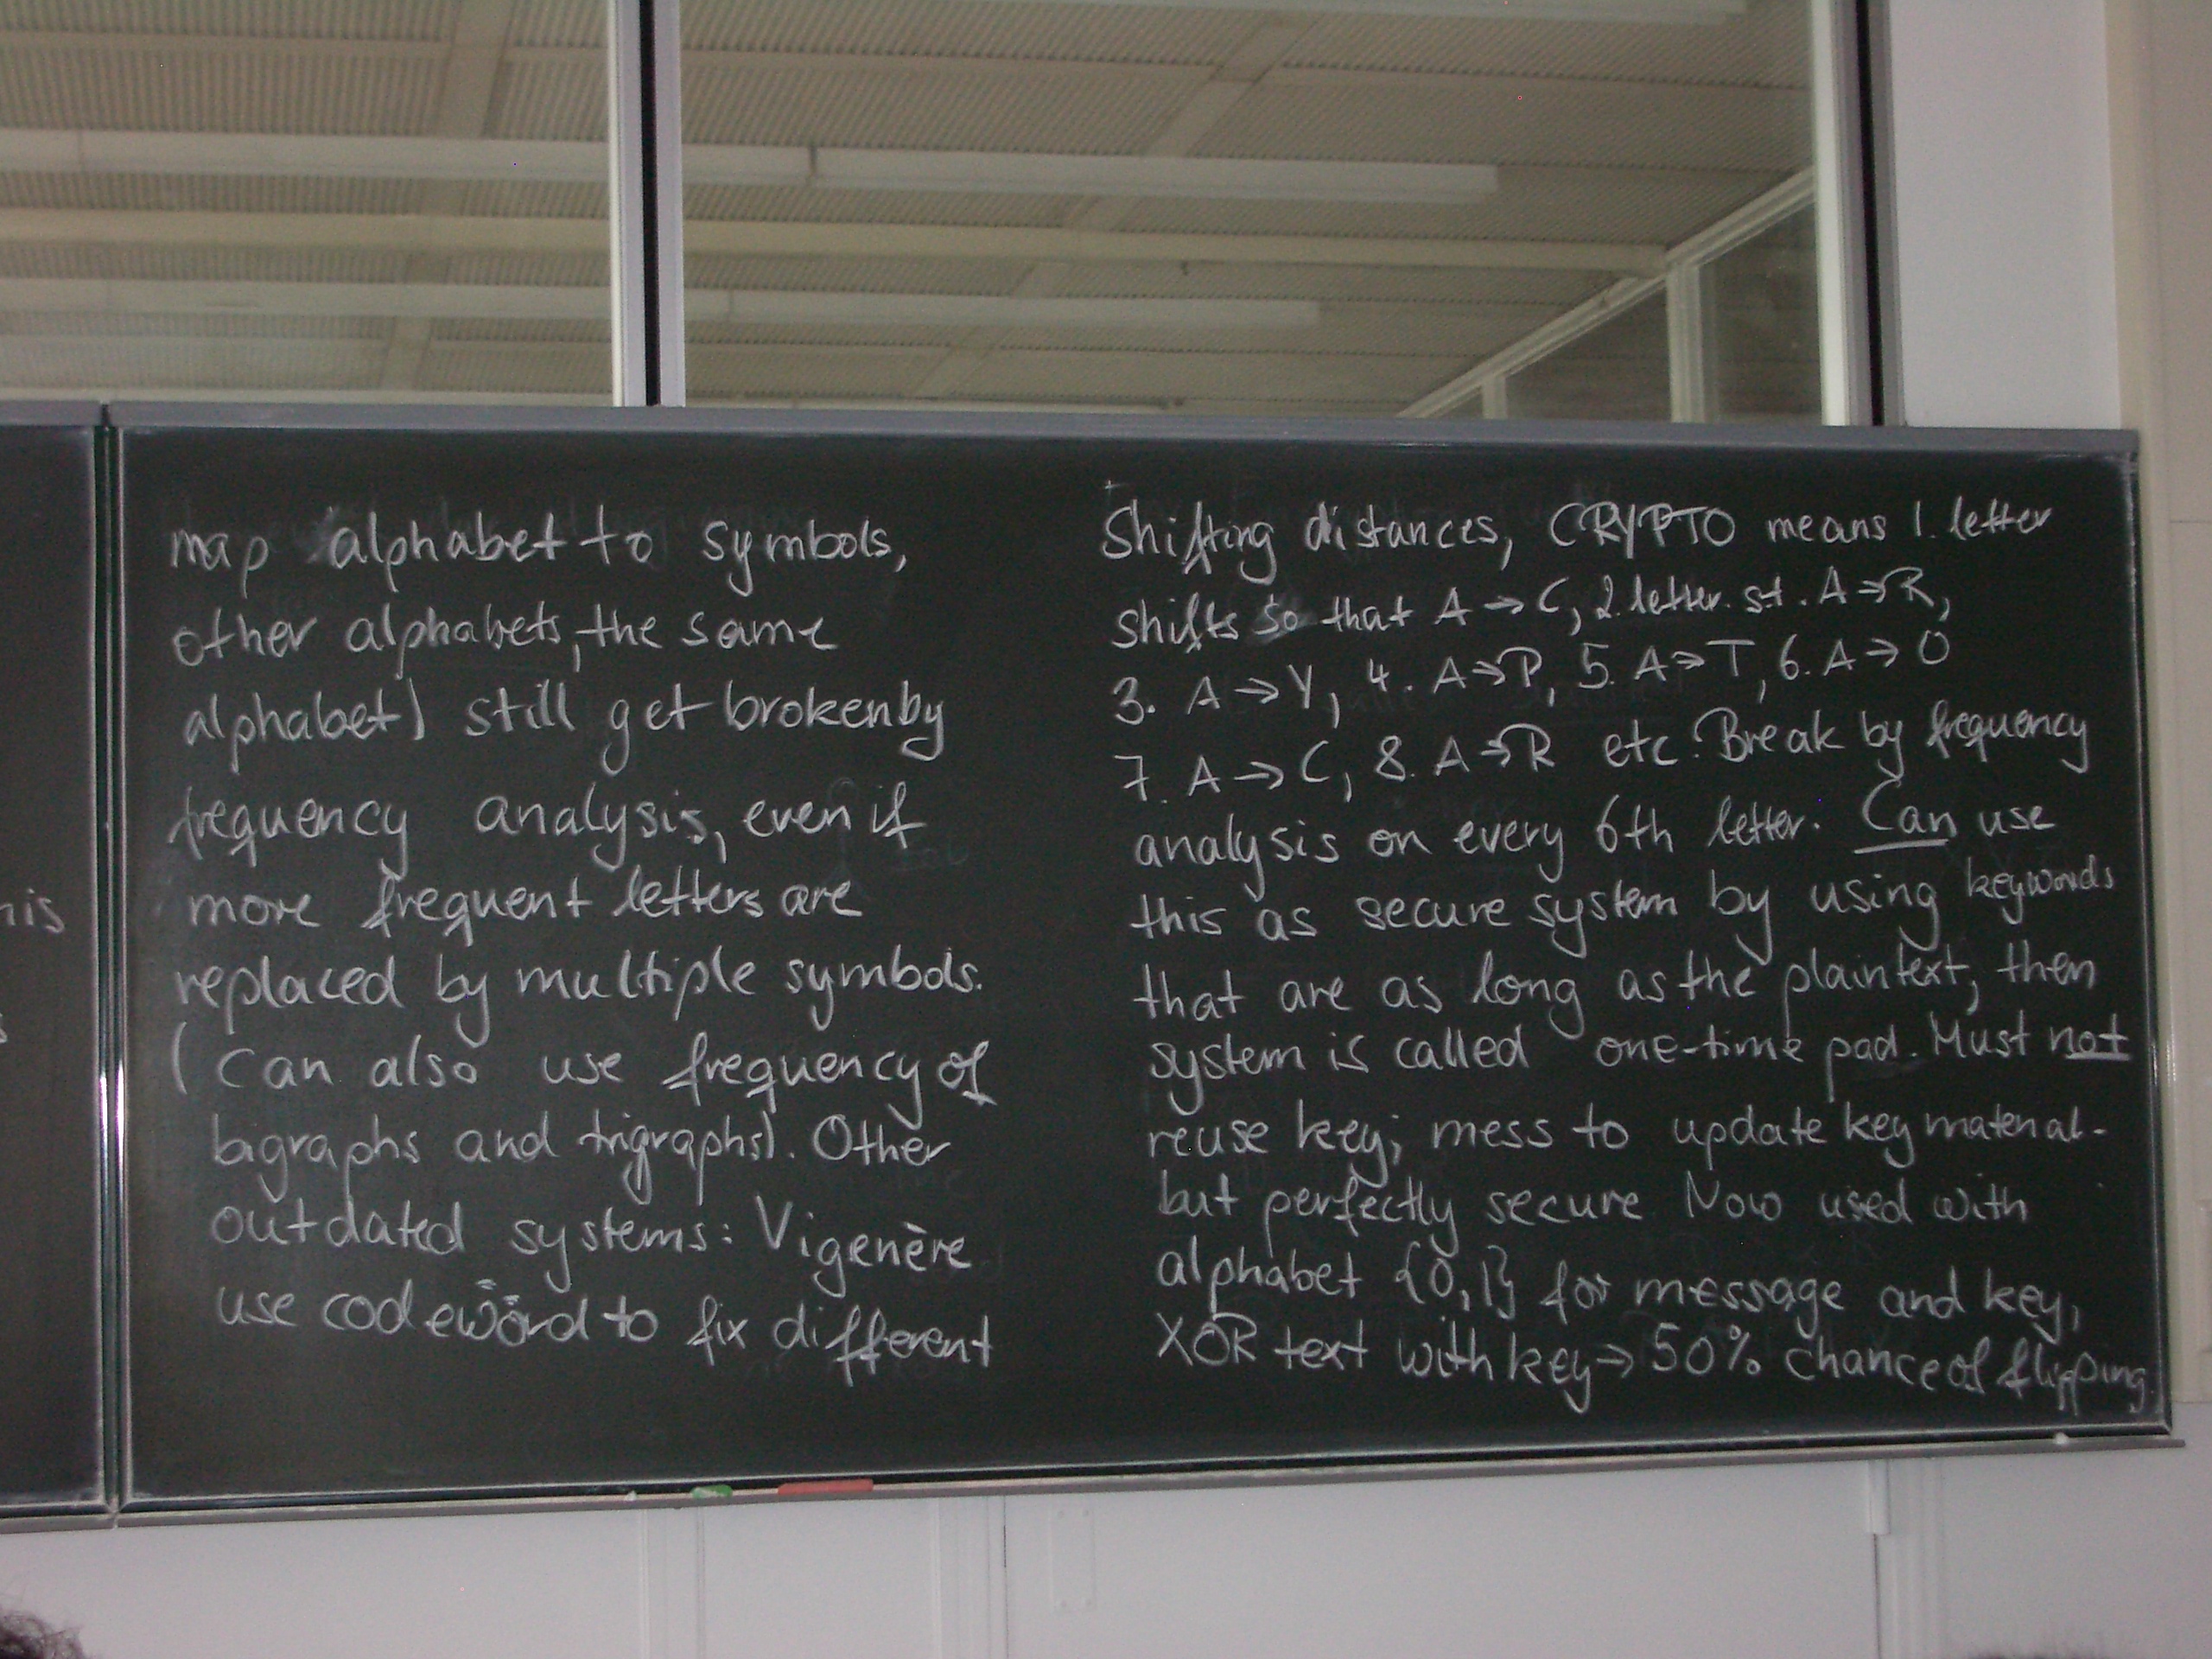 his
s
map alphabet to symbols,
other alphabets, the same
alphabet) still get broken by
frequency analysis, even if
more frequent letters are
replaced by multiple symbols.
(Can also use frequency of
bigraphs and trigraphs). Other
outdated systems: Vigenère
use codeword to fix different
Shifting distances, CRYPTO means 1. letter
shifts so that A → C, 2. letter. st. A → R,
3. A → Y, 4. A → P, 5. A → T, 6. A → O
7. A → C, 8. A → R etc. Break by frequency
analysis on every 6th letter. Can use
this as secure system by using keywords
that are as long as the plaintext, then
system is called one-time pad. Must not
reuse key; mess to update key material -
but perfectly secure Now used with
alphabet {0,1} for message and key,
XOR text with key → 50% chance of flipping.